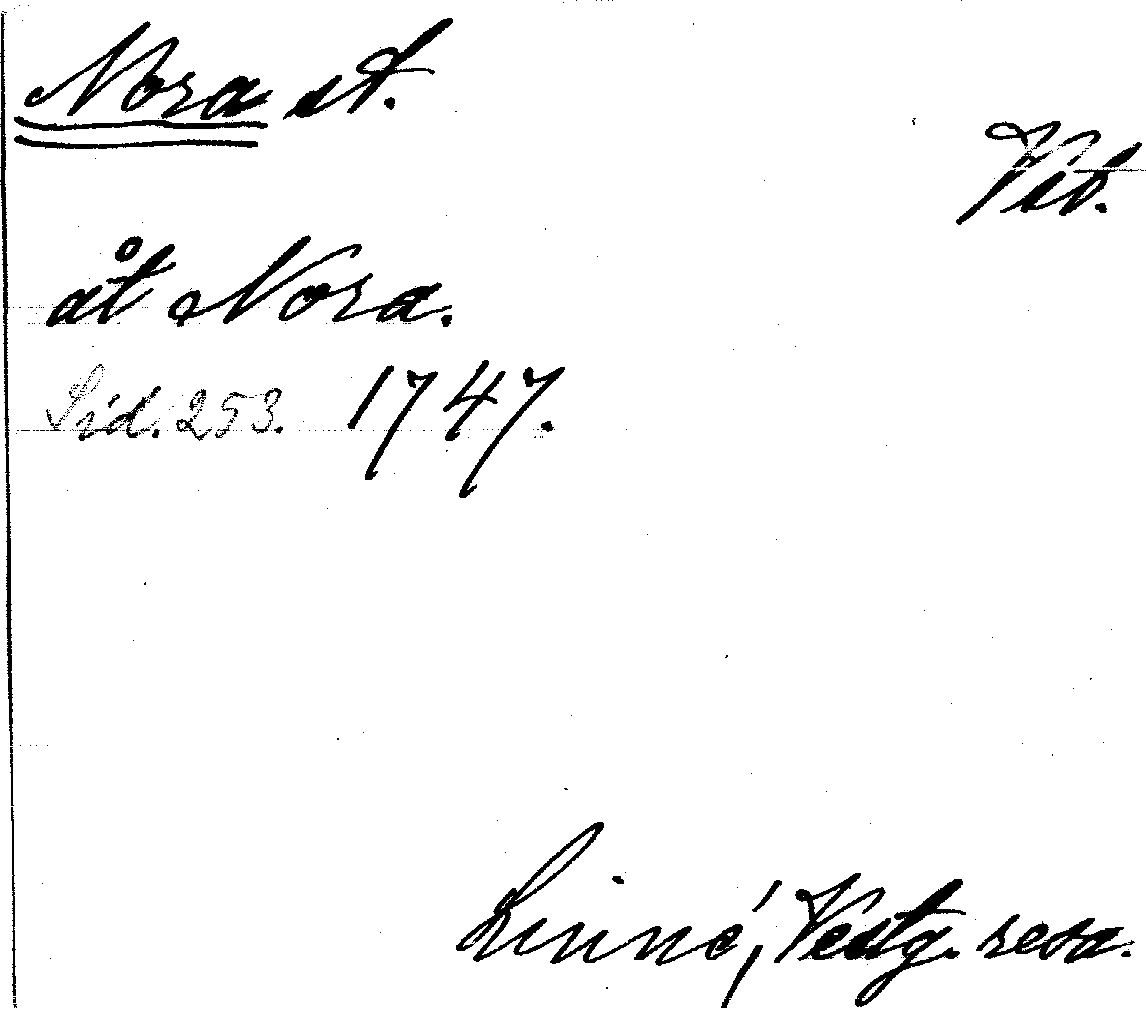 Nora st.
Vst.
åt Nora.
Sid. 253. 1747.
Linné, Vestg. resa.